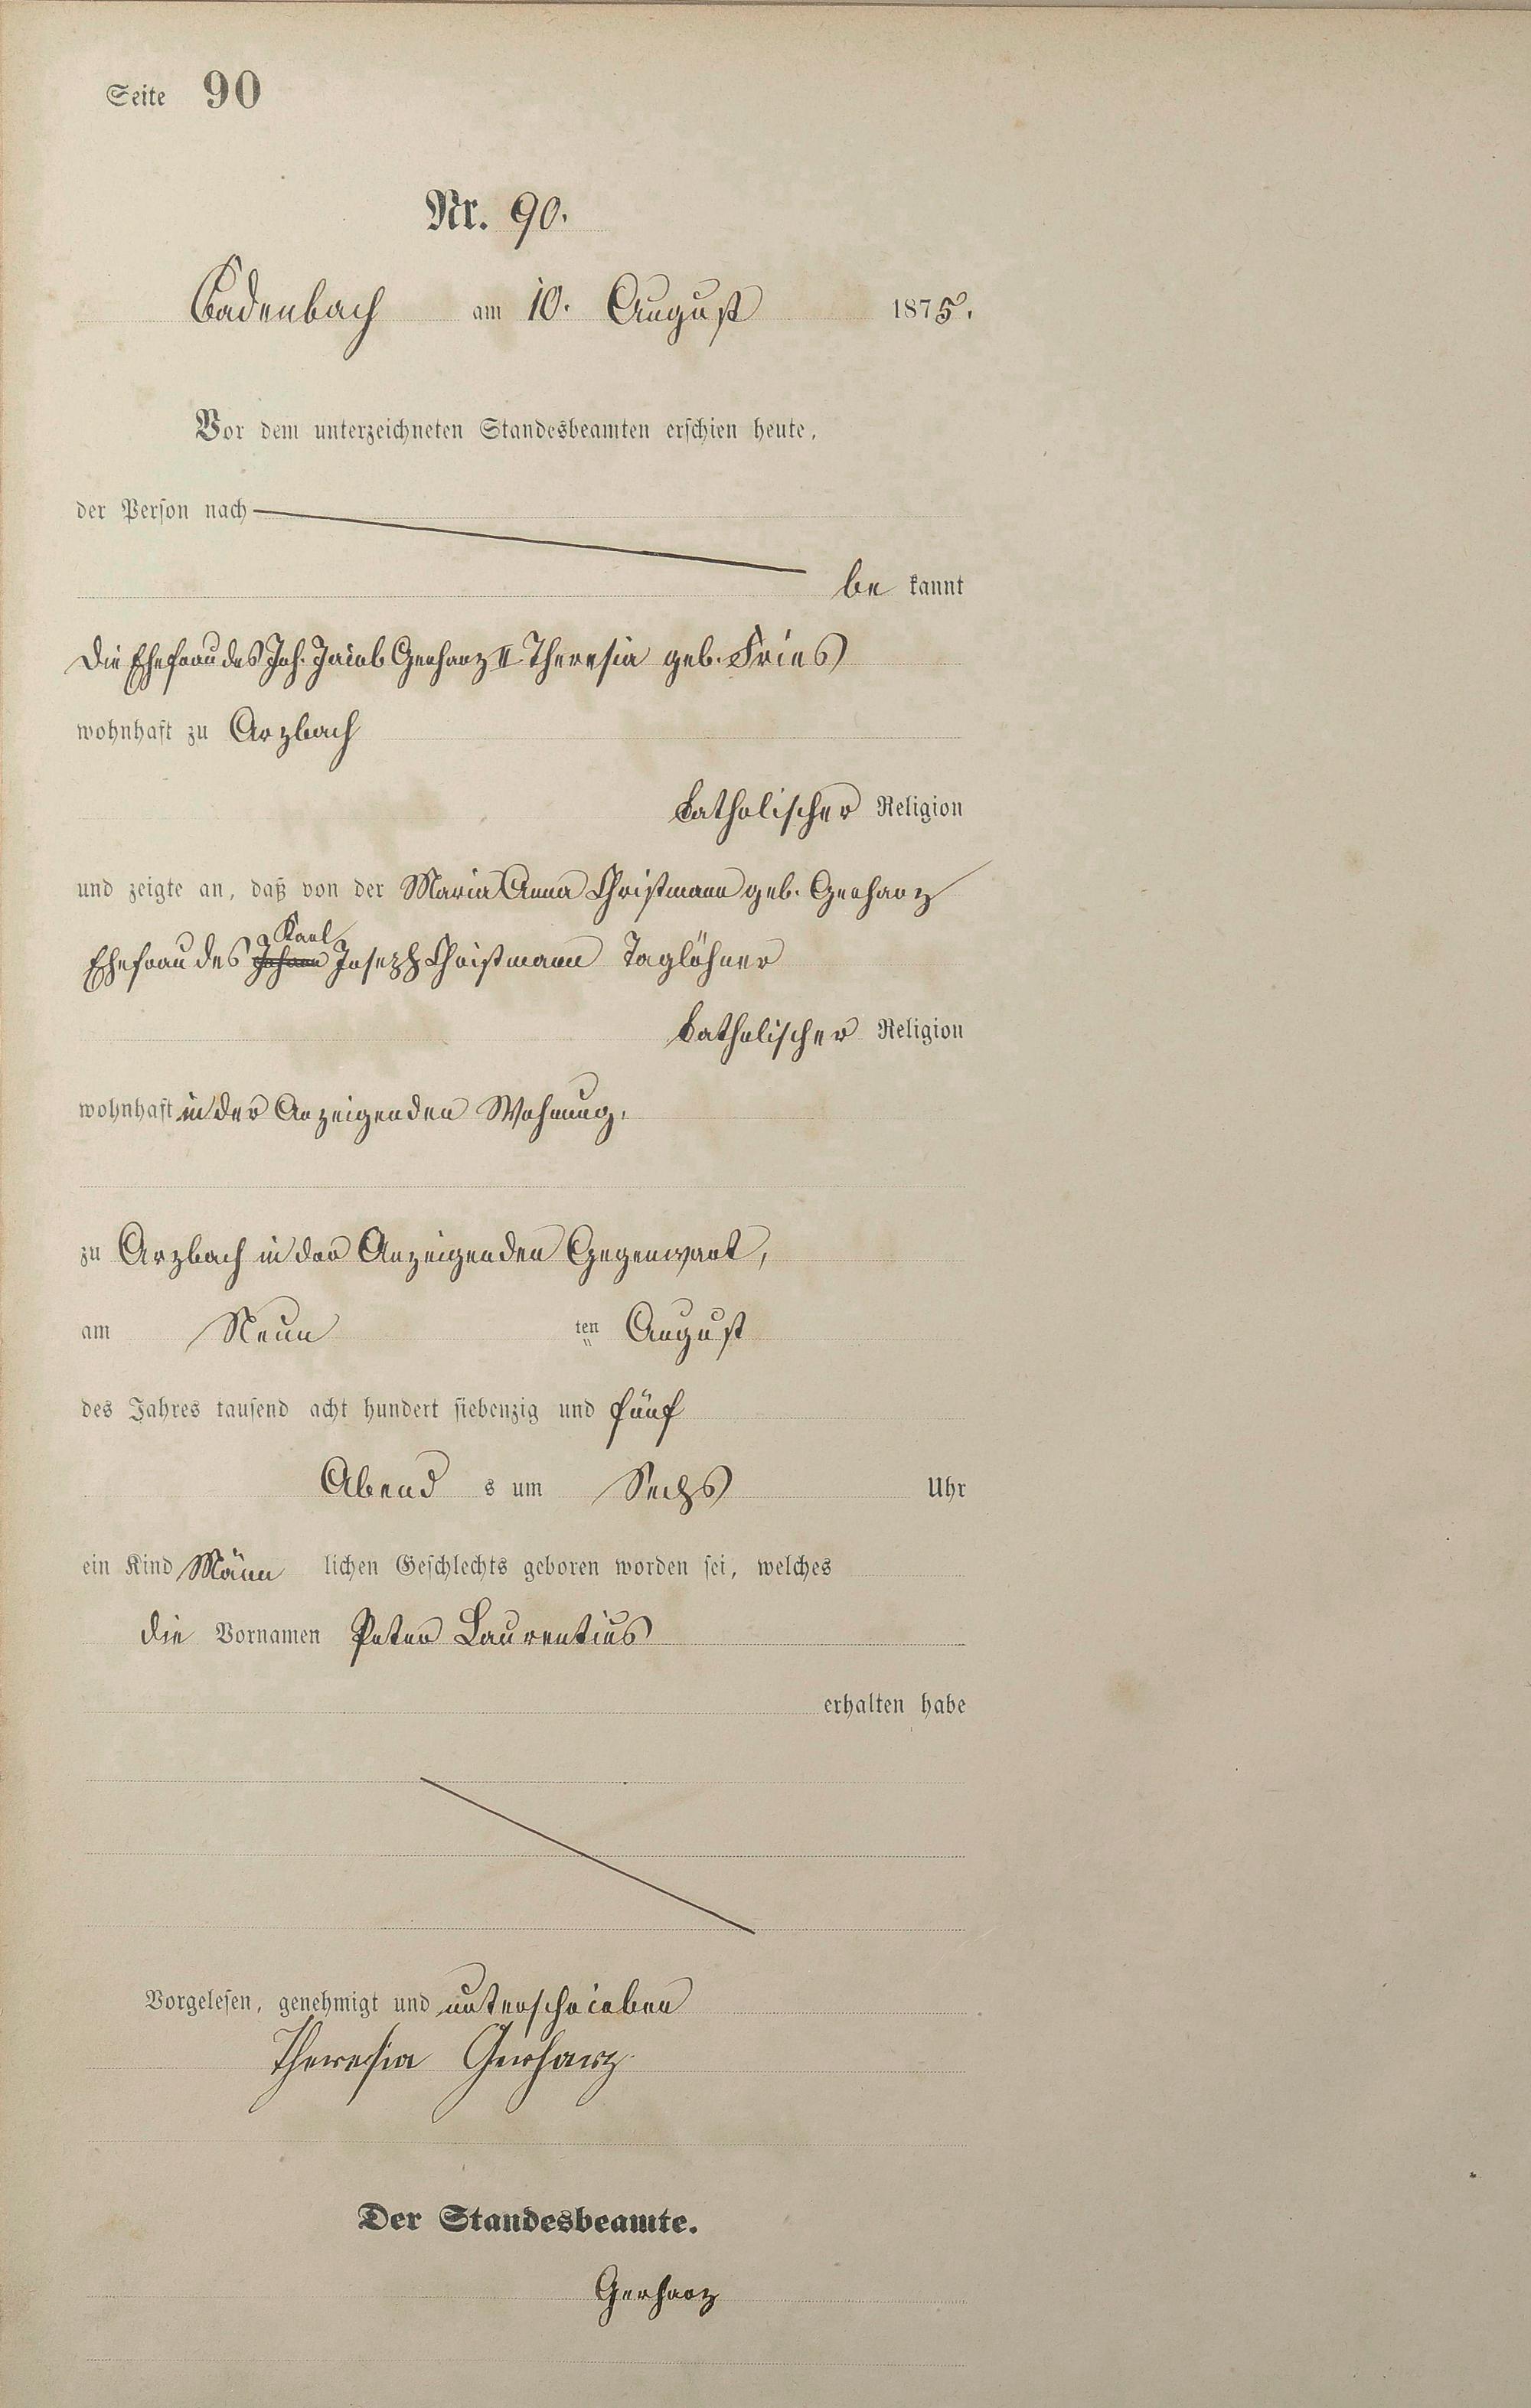 Seite 90
Nr. 90.
Cadenbach am 10. August 1875.
Vor dem unterzeichneten Standesbeamten erschien heute,
der Person nach
be kannt
die Ehefrau des Joh. Jacob Gerharz II Theresia geb. Fries
wohnhaft zu Arzbach
katholischer Religion
und zeigte an, daß von der Maria Anna Christmann geb. Gerharz
Karl
Ehefrau des Johann Joseph Christmann Taglöhner
katholischer Religion
wohnhaft in der Anzeigenden Wohnung,
zu Arzbach in der Anzeigenden Gegenwart,
am Neun ten August
des Jahres tausend acht hundert siebenzig und fünf
Abend s um Sechs Uhr
ein Kind Männ lichen Geschlechts geboren worden sei, welches
die Vornamen Peter Laurentius
erhalten habe
Vorgelesen, genehmigt und unterschrieben
Theresia Gerharz
Der Standesbeamte.
Gerharz